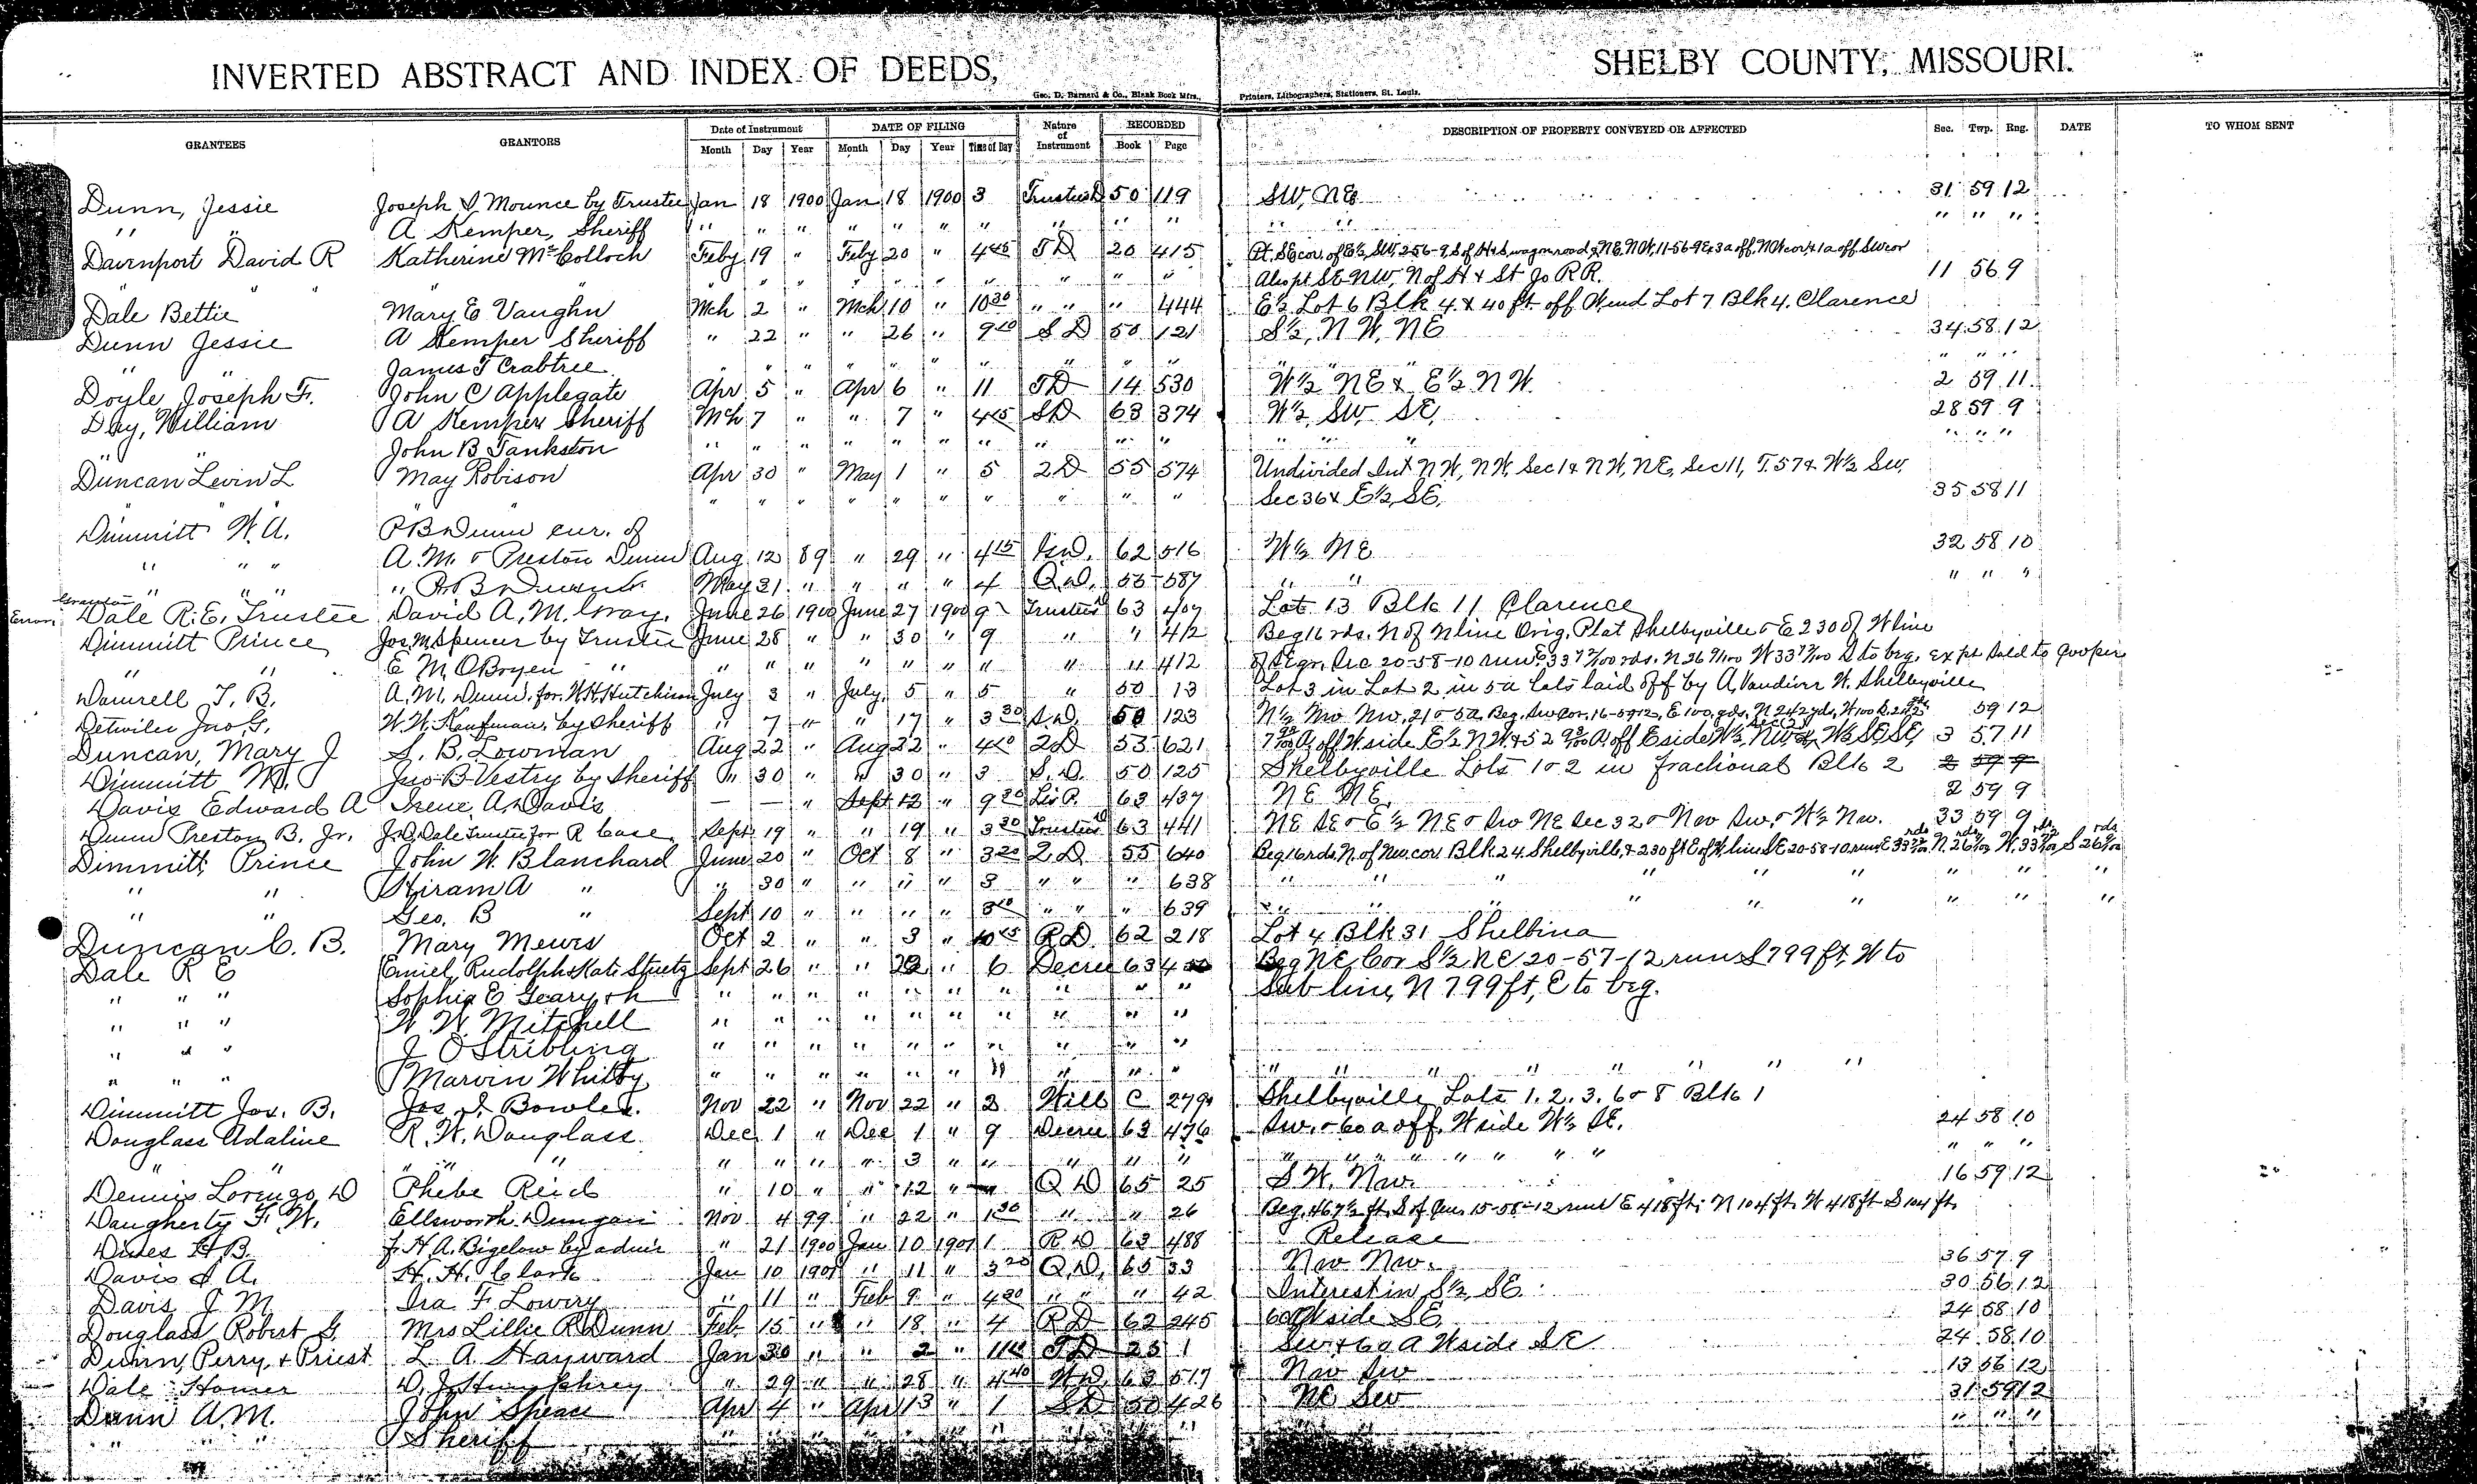 INVERTED ABSTRACT AND INDEX OF DEEDS, SHELBY COUNTY, MISSOURI.
Geo. D. Barnard & Co., Blank Book Mfrs., Printers, Lithographers, Stationers, St. Louis.
GRANTEES GRANTORS Date of Instrument DATE OF FILING Nature of Instrument RECORDED DESCRIPTION OF PROPERTY CONVEYED OR AFFECTED Sec. Twp. Rng. DATE TO WHOM SENT
Month Day Year Month Day Year Time of Day Book Page
Dunn, Jessie Joseph I Mounce by Trustee Jan 18 1900 Jan 18 1900 3 Trustees D 50 119 SW, NE 31 59 12
" " A Kemper, Sheriff " " " " " " " " " " " " " " "
Davenport David R Katherine McColloch Feby 19 " Feby 20 " 4 45 TD 20 415 Pt. SE cor. of E½, SW, 2-56-9, S of H & S, wagon road & NE, NW, 11-56-9 Ex 3a off, NW cor, & 1a off SW cor
" " " " " " " " " " " " Also pt SE NW, N of H & St Jo RR. 11 56 9
Dale Bettie Mary E Vaughn Mch 2 " Mch 10 " 10 30 " " " 444 E½ Lot 6 Blk 4 & 40 ft. off W end Lot 7 Blk 4. Clarence
Dunn Jessie A Kemper Sheriff " 22 " " 26 " 9 10 SD 50 121 S½, NW, NE 34 58 12
" " James T Crabtree " " " " " " " " " " " " " " " "
Doyle Joseph F. John C Applegate Apr 5 " Apr 6 " 11 TD 14 530 W½ NE & E½ NW. 2 59 11
Day, William A Kemper Sheriff Mch 7 " " 7 " 4 45 SD 63 374 W½ SW SE, 28 59 9
" " John B Tankston " " " " " " " " " " " " " " " "
Duncan Levin L May Robison Apr 30 " May 1 " 5 2D 55 574 Undivided Int NW, NW, Sec 1 & NW, NE, Sec 11, T. 57 & W½ SW,
" " " " " " " " " " " Sec 36 & E½, SE, 35 58 11
Dimmitt W. A. P B Dunn cur. of
" " " A. M. & Preston Dunn Aug 12 89 " 29 " 4 15 62 516 W½ NE 32 58 10
" " " " May 31 " " " " 4 Q.D. 55 587 " " " " "
Error, Grantor Dale R. E. Trustee David A. M. Gray. June 26 1900 June 27 1900 9 Trustees D 63 409 Lot 13 Blk 11 Clarence
Dimmitt Prince Jos. M. Spencer by Trustee June 28 " " 30 " 9 " " 412 Beg 16 rds. N of N line Orig. Plat Shelbyville & E 230 of W line
" " E M OBryen " " " " " " " " " " 412 of SE qr. Sec 20-58-10 run E 33 rds. N 26 W 33 S to beg. ex pt sold to Cooper
Damrell T. B. A. M. Dunn, for W. H. Hutchison July 3 " July 5 " 5 " 50 13 Lot 3 in Lot 2 in 5a lots laid off by A. Vandiver W. Shelbyville
Detwiler Jno G. W. W. Kaufman, by Sheriff " 7 " " 17 " 3 30 S.D. 50 123 N½ NW NW, 21 & 5a. Beg. SW cor. 16-59-12, E 100, yds, N 242 yds, W 100 S. 242 59 12
Duncan, Mary J S. B. Lowman Aug 22 " Aug 22 " 4 10 2D 53 621 7 A, off W. side E½ NW & 52 A. off E side W½, NW & W½ SE, SE, 3 57 11
Dimmitt M. Jno B Vestry by Sheriff " 30 " " 30 " 3 S.D. 50 125 Shelbyville Lots 1 & 2 in fractional Blk 2 2 59 9
Davis Edward A Irene A. Davis — — " Sept 12 " 9 30 Lis P. 63 437 NE NE. 2 59 9
Dunn Preston B. Jr. J. D. Dale Trustee for R Case Sept 19 " " 19 " 3 30 Trustees D 63 441 NE SE & E½ NE & SW NE Sec 32 & NW SW. & W½ NW. 33 59 9
Dimmitt, Prince John W. Blanchard June 20 " Oct 8 " 3 20 2D 55 640 Beg 16 rds. N. of NW. cor. Blk 24. Shelbyville, & 230 ft E of W. line SE 20-58-10 run E 33 rds N. 26 rds W. 33 rds S 26 rds
" " Hiram A " " 30 " " " " 3 " " " 638 " " " " " " " " " "
" " Geo. B " Sept 10 " " " " 3 10 " " " 639 " " " " " " " " " "
Duncan C. B. Mary Mewis Oct 2 " " 3 " 10 45 RD 62 218 Lot 4 Blk 31 Shelbina
Dale R E Emiel, Rudolph & Kate Stuetz Sept 26 " " 22 " 6 Decree 63 Beg NE Cor S½ NE 20-57-12 run S 799 ft, W to
" " " Sophia E Geary & h " " " " " " " " " " Sub line, N 799 ft, E to beg.
" " " W. W. Mitchell " " " " " " " " " "
" " " J O Stribling " " " " " " " " " "
" " " Marvin Whitby " " " " " " " " " " " " " " " " " "
Dimmitt Jas. B. Jos. I. Bowles. Nov 22 " Nov 22 " 2 Will C 279 Shelbyville Lots 1, 2, 3, 6 & 8 Blk 1
Douglass Adaline R. W. Douglass Dec 1 " Dec 1 " 9 Decree 63 476 SW. & 60 a off W side W½ SE. 24 58 10
" " " " " " " " " 3 " " " " " " " " " " " " " " "
Dennis Lorenzo D Phebe Reid " 10 " " 12 " Q D 65 25 S W. NW. 16 59 12
Daugherty F. W. Ellsworth Dungan Nov 4 99 " 22 " 1 30 " " 26 Beg. 467½ ft. S of 15-58-12 run E 418 ft; N 104 ft. W 418 ft S 104 ft.
Dines H B. J. H. A. Bigelow by admr " 21 1900 Jan 10 1901 1 R D 63 488 Release
Davis I A. H. H. Clark Jan 10 1901 " 11 " 3 20 Q.D. 65 33 NW NW. 36 57 9
Davis J M. Ira F Lowry " 11 " Feb 9 " 4 30 " " " 42 Interest in S½, SE. 30 56 12
Douglass Robert G. Mrs Lillie R Dunn Feb 15 " " 18 " 4 RD 62 245 60a W side SE 24 58 10
Dunn, Perry, & Priest L A Hayward Jan 30 " " 2 " 11 10 TD 23 1 SW & 60 A W side SE 24 58 10
Dale Homer D. J. Humphrey " 29 " " 28 " 4 40 W D 63 517 NW SW 13 56 12
Dunn A. M. John Speace Apr 4 " Apr 13 " 1 SD 50 426 NE SW 31 59 12
" " " Sheriff " " " " " " " " " " " " " " "